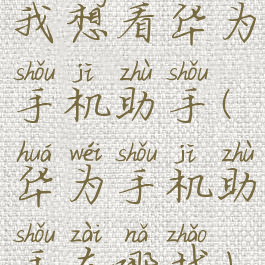 我想看华为
shǒu jī zhù shǒu
手机助手(
huá wéi shǒu jī zhù
华为手机助
shǒu zài nǎ zhǎo
手在哪找)